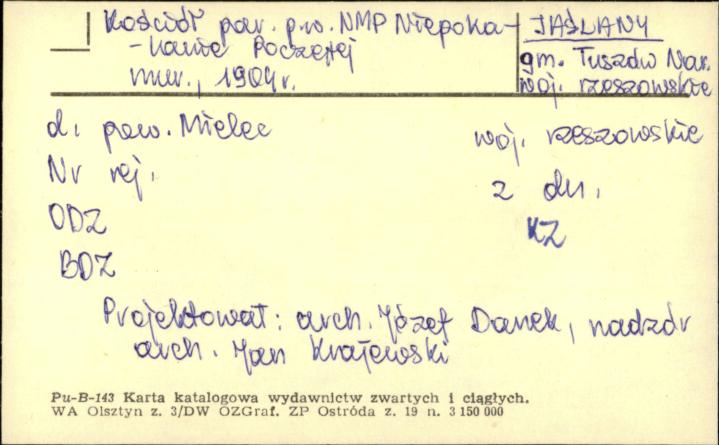 Kościół par. p.w. NMP Niepoka-
-lanie Poczętej
mur., 1904 r.
JAŚLANY
gm. Tuszów Nar.
woj. rzeszowskie
d. pow. Mielec
woj. rzeszowskie
Nr rej.
z dn.
ODZ
KZ
BDZ
Projektował: arch. Józef Danek, nadzór
arch. Jan Krajewski
Pu-B-143 Karta katalogowa wydawnictw zwartych i ciągłych.
WA Olsztyn z. 3/DW OZGraf. ZP Ostróda z. 19 n. 3 150 000